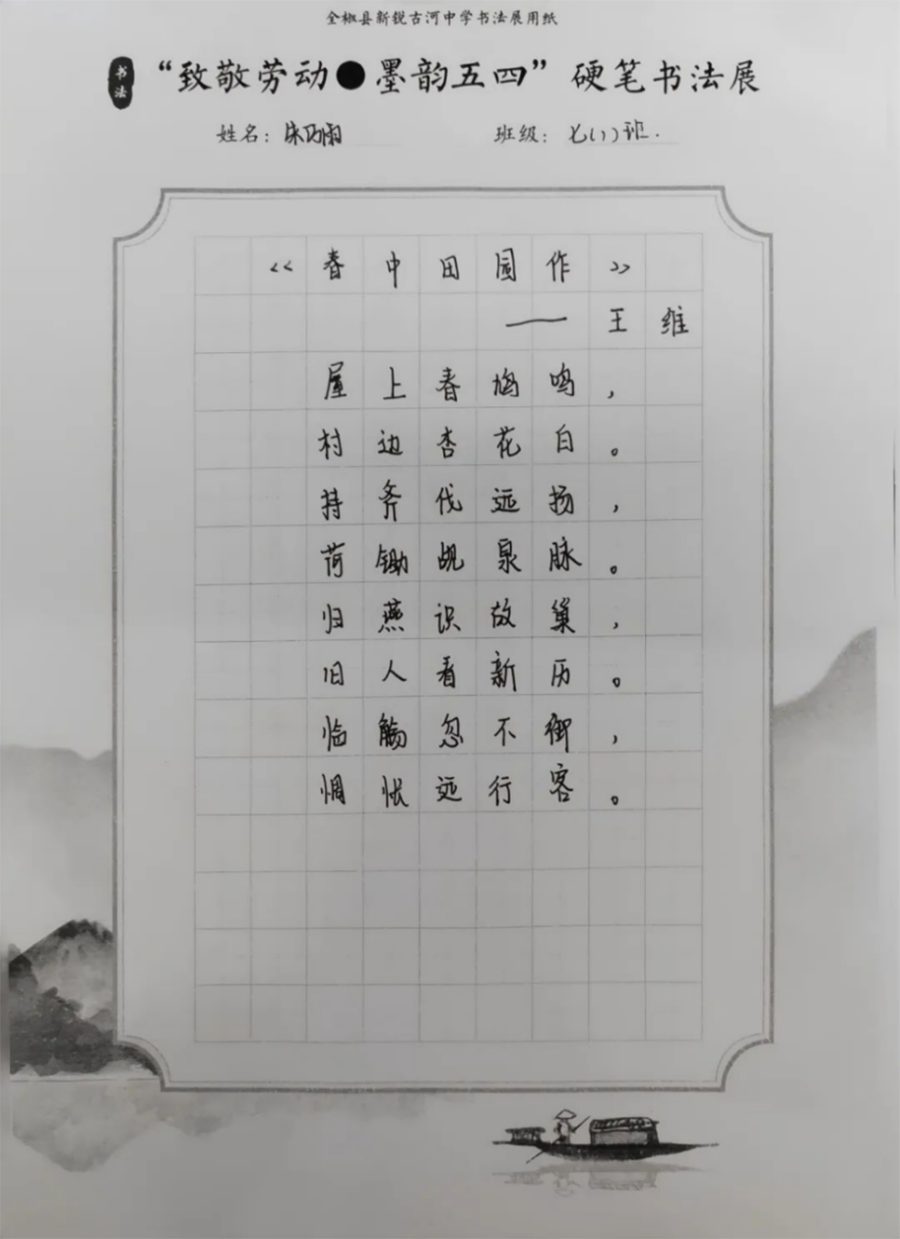 全椒县新锐古河中学书法展用纸
书法
“致敬劳动●墨韵五四”硬笔书法展
姓名：朱巧雨
班级：七(1)班.
《春中田园作》
——王维
屋上春鸠鸣，
村边杏花白。
持斧伐远扬，
荷锄觇泉脉。
归燕识故巢，
旧人看新历。
临觞忽不御，
惆怅远行客。